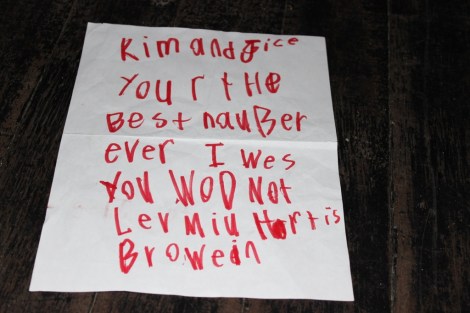 Kim and Jice
You r the
Best nauBer
ever I wes
You WOD Not
Lev Miu Hortis
Browein